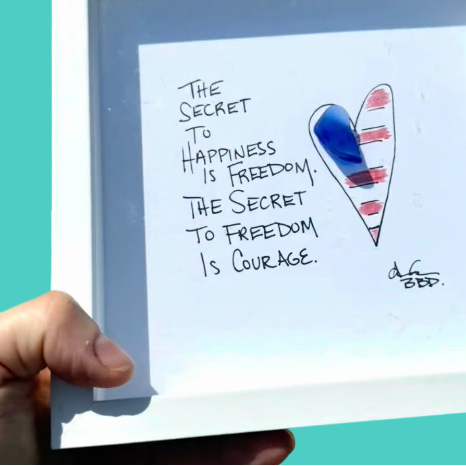 THE
SECRET
TO
HAPPINESS
IS FREEDOM.
THE SECRET
TO FREEDOM
IS COURAGE.
BBD.